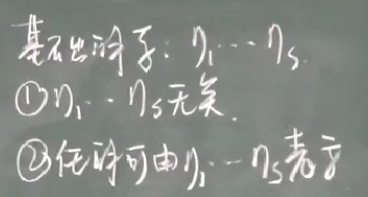 基础解系：η₁…ηs
①η₁…ηs无关.
②任解可由η₁…ηs表示